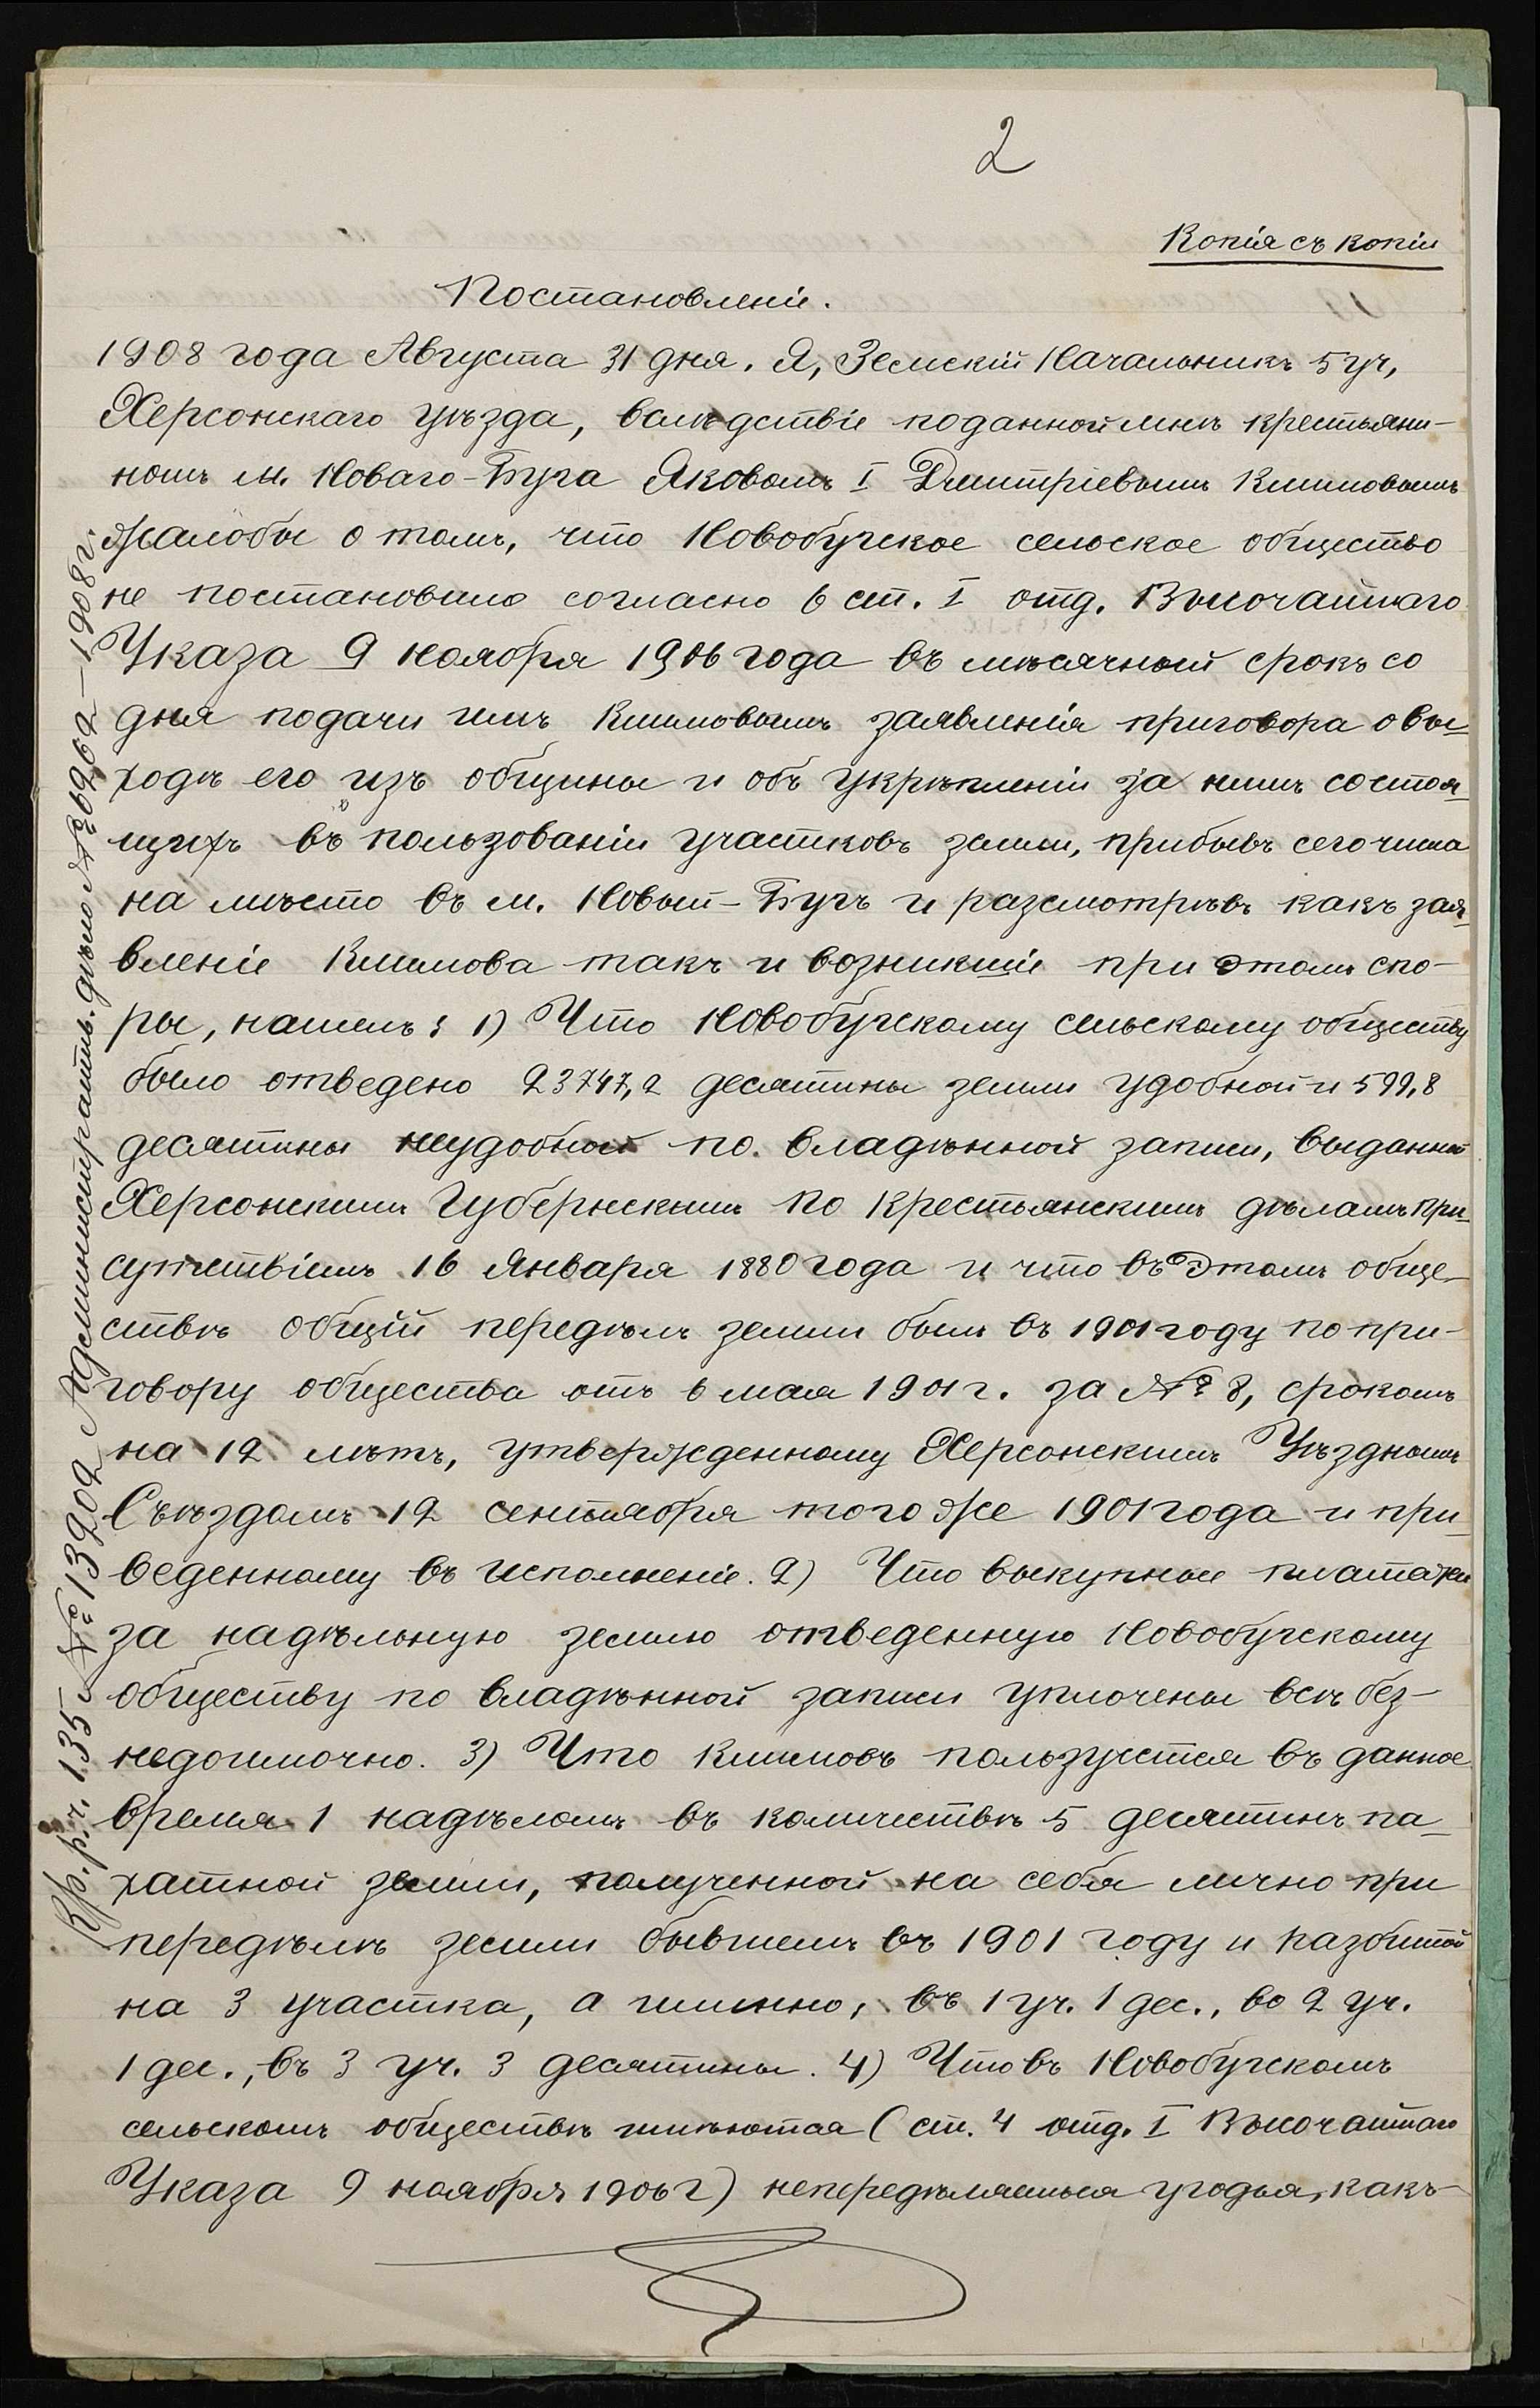 2
Копія съ копіи
Постановленіе.
1908 года Августа 31 дня. Я, Земскій Начальникъ 5 уч,
Херсонскаго уѣзда, вслѣдствіе поданной мнѣ крестьяни-
номъ м. Новаго-Буга Яковомъ I Дмитріевымъ Климовымъ
жалобы о томъ, что Новобугское сельское общество
не постановило согласно 6 ст. I отд. Высочайшаго
Указа 9 ноября 1906 года въ мѣсячный срокъ со
дня подачи имъ Климовымъ заявленія приговора о вы-
ходѣ его изъ общины и объ укрѣпленіи за нимъ состоя-
щихъ въ пользованіи участковъ земли, прибывъ сего числа
на мѣсто въ м. Новый-Бугъ и разсмотрѣвъ какъ зая-
вленіе Климова такъ и возникшіе при этомъ спо-
ры, нашелъ: 1) Что Новобугскому сельскому обществу
было отведено 23747,2 десятины земли удобной и 599,8
десятины неудобной по владѣнной записи, выданной
Херсонскимъ Губернскимъ по крестьянскимъ дѣламъ при-
сутствіемъ 16 Января 1880 года и что въ этомъ обще-
ствѣ общій передѣлъ земли былъ въ 1901 году по при-
говору общества отъ 6 мая 1901 г. за № 8, срокомъ
на 12 лѣтъ, утвержденному Херсонскимъ Уѣзднымъ
Съѣздомъ 12 сентября того же 1901 года и при-
веденному въ исполненіе. 2) Что выкупные платежи
за надѣльную землю отведенную Новобугскому
обществу по владѣнной записи уплочены всѣ без-
недоимочно. 3) Что Климовъ пользуется въ данное
время 1 надѣломъ въ количествѣ 5 десятинъ па-
хатной земли, полученной на себя лично при
передѣлѣ земли бывшемъ въ 1901 году и разбитой
на 3 участка, а именно, въ 1 уч. 1 дес., во 2 уч.
1 дес., въ 3 уч. 3 десятины. 4) Что въ Новобугскомъ
сельскомъ обществѣ имѣются (ст. 4 отд. I Высочайшаго
Указа 9 ноября 1906 г) непередѣляемыя угодья, какъ
Кр. р. ч. 135 № 13202 Административ. дѣло № 6962 — 1908 г.